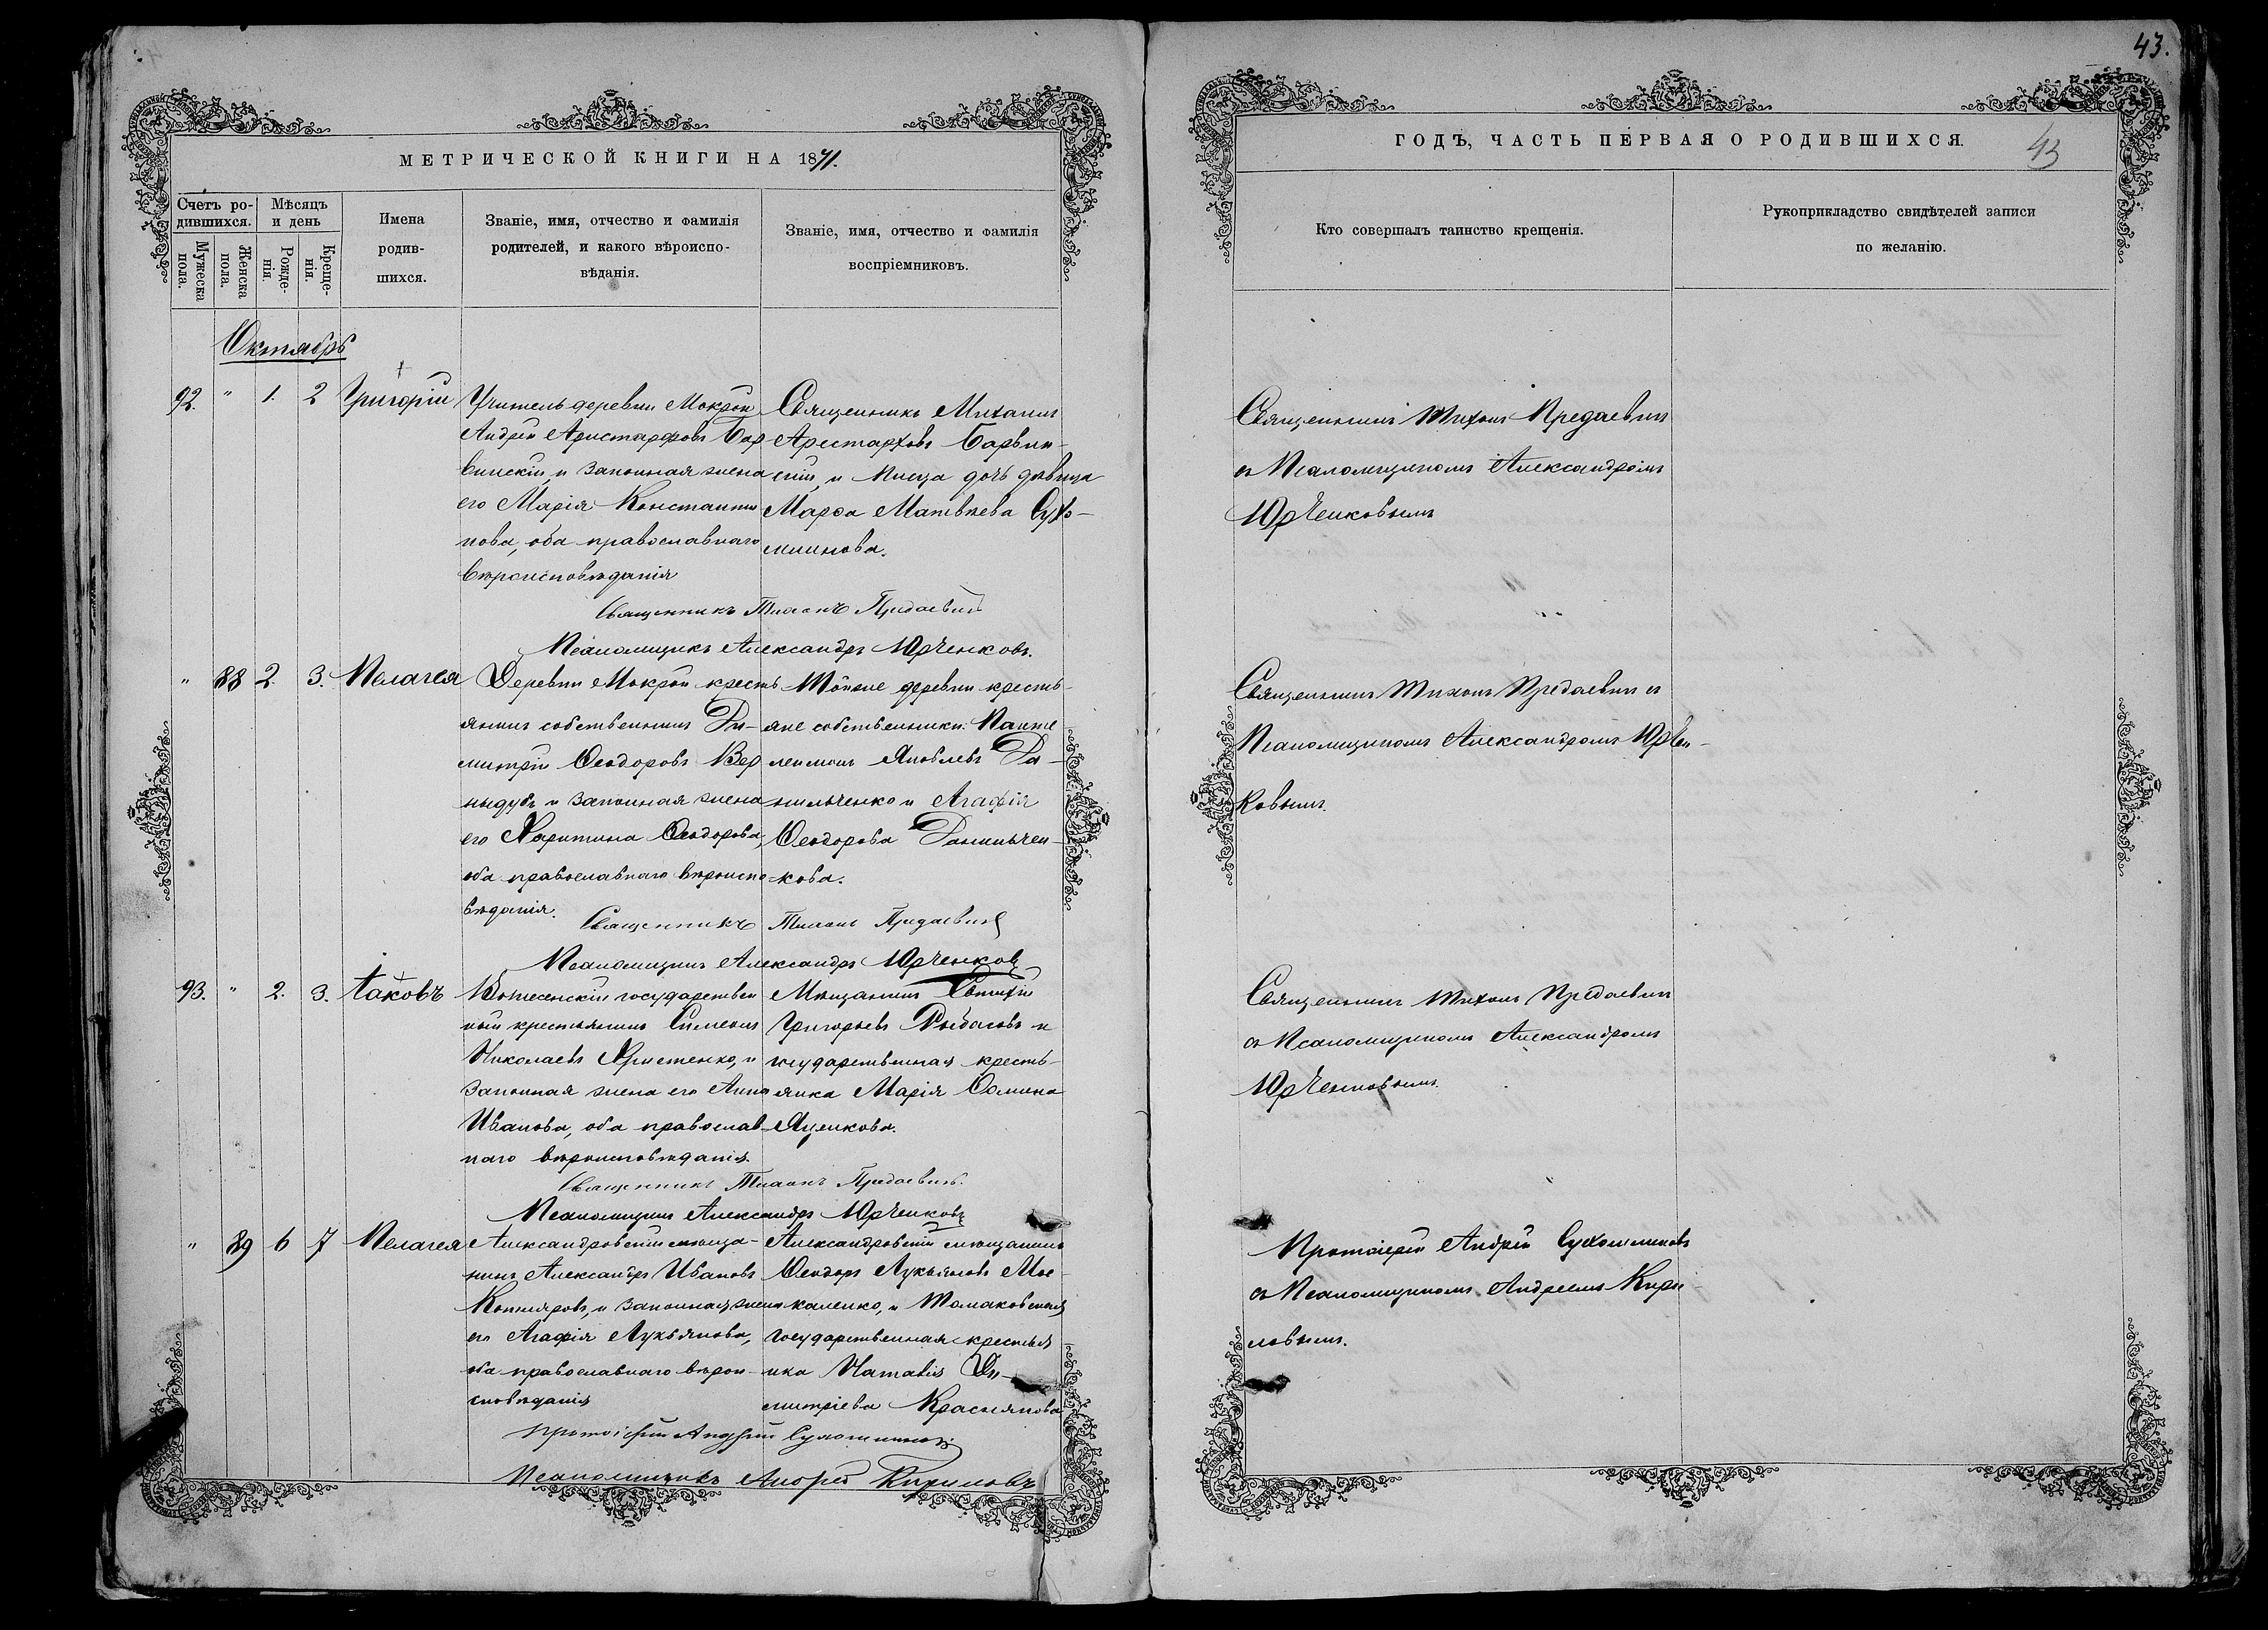 43.
МЕТРИЧЕСКОЙ КНИГИ НА 1871.
Счетъ ро-
дившихся.
Мужеска
пола.
Женска
пола.
Мѣсяцъ
и день
Рожде-
нія.
Креще-
нія.
Имена
родив-
шихся.
Званіе, имя, отчество и фамилія
родителей, и какого вѣроиспо-
вѣданія.
Званіе, имя, отчество и фамилія
воспріемниковъ.
Октябрь
92. " 1. 2 Григорій
Учитель деревни Мокрой
Андрей Аристарховъ Бар
винскій, и законная жена
его Марія Константи
нова, оба православнаго
вѣроисповѣданія
Священникъ Михаилъ
Арестарховъ Барвин-
скій, и дочь дѣвица
Марѳа Матвѣева Сухо-
млинова.
Священникъ Тихонъ Предаевичъ
Псаломщикъ Александръ Юрченковъ.
" 88 2. 3. Пелагея
Деревни Мокрой кресть
янинъ собственникъ Ди-
митрій Ѳеодоровъ Вер
ныдубъ и законная жена
его Харитина Ѳеодорова,
оба православнаго вѣроиспо
вѣданія.
Тойже деревни кресть-
яне собственники: Панте
леимонъ Яковлевъ Да-
нильченко и Агафія
Ѳеодорова Данильчен-
кова.
Священникъ Тихонъ Предаевичъ
Псаломщикъ Александръ Юрченковъ
93. " 2. 3. Іаковъ
государствен
ный крестьянинъ Симеонъ
Николаевъ Христенко, и
законная жена его Анна
Иванова, оба православ-
наго вѣроисповѣданія.
Мѣщанинъ Евтихій
Григорьевъ Рыбаговъ и
государственная кресть-
янка Марія Ѳомина
Яценкова.
Священникъ Тихонъ Предаевичъ.
Псаломщикъ Александръ Юрченковъ
" 89 6 7 Пелагея
Александровскій мѣща-
нинъ Александръ Ивановъ
Котляровъ, и законная жена
его Агафія Лукьянова,
оба православнаго вѣрои-
сповѣданія
Александровскій мѣщанинъ
Ѳеодоръ Лукьяновъ Мос-
каленко, и Томаковская
государственная крестья
нка Наталія Ди-
митріева Краснянова
Протоіерей Андрей Сухомлиновъ
Псаломщикъ Андрей Кириловъ
ГОДЪ, ЧАСТЬ ПЕРВАЯ О РОДИВШИХСЯ.
43
Кто совершалъ таинство крещенія.
Рукоприкладство свидѣтелей записи
по желанію.
Священникъ Тихонъ Предаевичъ
съ Псаломщикомъ Александромъ
Юрченковымъ
Священникъ Тихонъ Предаевичъ съ
Псаломщикомъ Александромъ Юрчен-
ковымъ.
Священникъ Тихонъ Предаевичъ
съ Псаломщикомъ Александромъ
Юрченковымъ.
Протоіерей Андрей Сухомлиновъ
съ Псаломщикомъ Андреемъ Кири-
ловымъ.